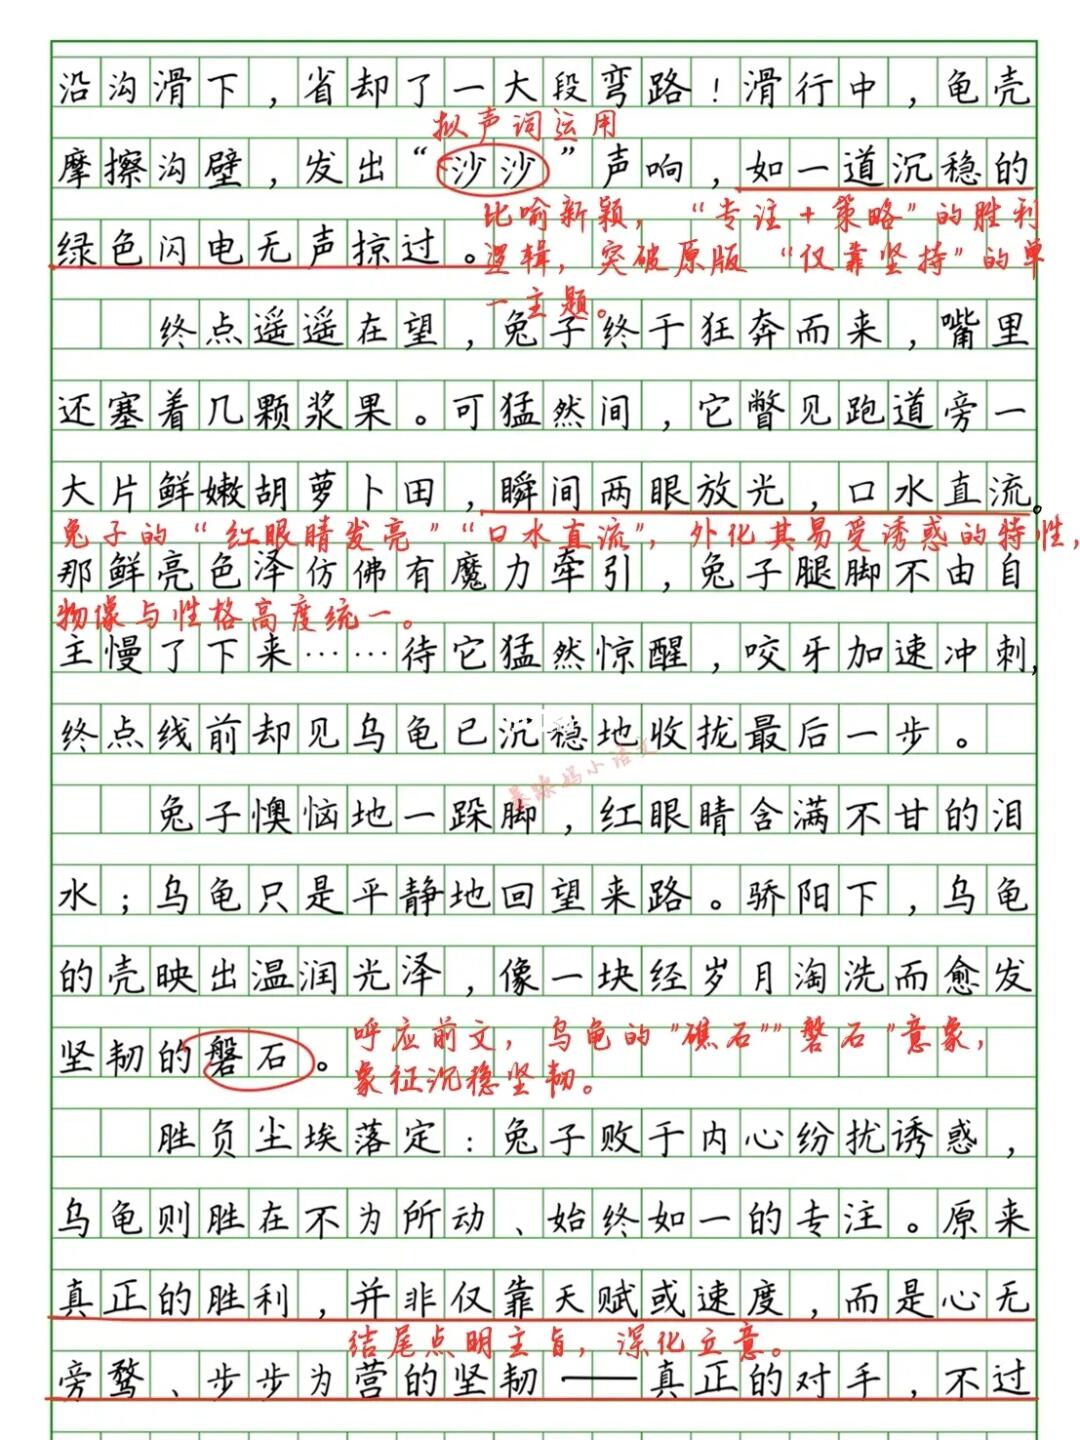 沿沟滑下，省却了一大段弯路！滑行中，龟壳
拟声词运用
摩擦沟壁，发出“沙沙”声响，如一道沉稳的
比喻新颖，“专注+策略”的胜利
绿色闪电无声掠过。
逻辑，突破原版“仅靠坚持”的单
一主题。
终点遥遥在望，兔子终于狂奔而来，嘴里
还塞着几颗浆果。可猛然间，它瞥见跑道旁一
大片鲜嫩胡萝卜田，瞬间两眼放光，口水直流。
兔子的“红眼睛发亮”“口水直流”，外化其易受诱惑的特性，
那鲜亮色泽仿佛有魔力牵引，兔子腿脚不由自
物像与性格高度统一。
主慢了下来……待它猛然惊醒，咬牙加速冲刺，
终点线前却见乌龟已沉稳地收拢最后一步。
暴躁妈小语文
兔子懊恼地一跺脚，红眼睛含满不甘的泪
水；乌龟只是平静地回望来路。骄阳下，乌龟
的壳映出温润光泽，像一块经岁月淘洗而愈发
呼应前文，乌龟的"礁石""磐石"意象，
坚韧的磐石。
象征沉稳坚韧。
胜负尘埃落定：兔子败于内心纷扰诱惑，
乌龟则胜在不为所动、始终如一的专注。原来
真正的胜利，并非仅靠天赋或速度，而是心无
结尾点明主旨，深化立意。
旁骛、步步为营的坚韧——真正的对手，不过